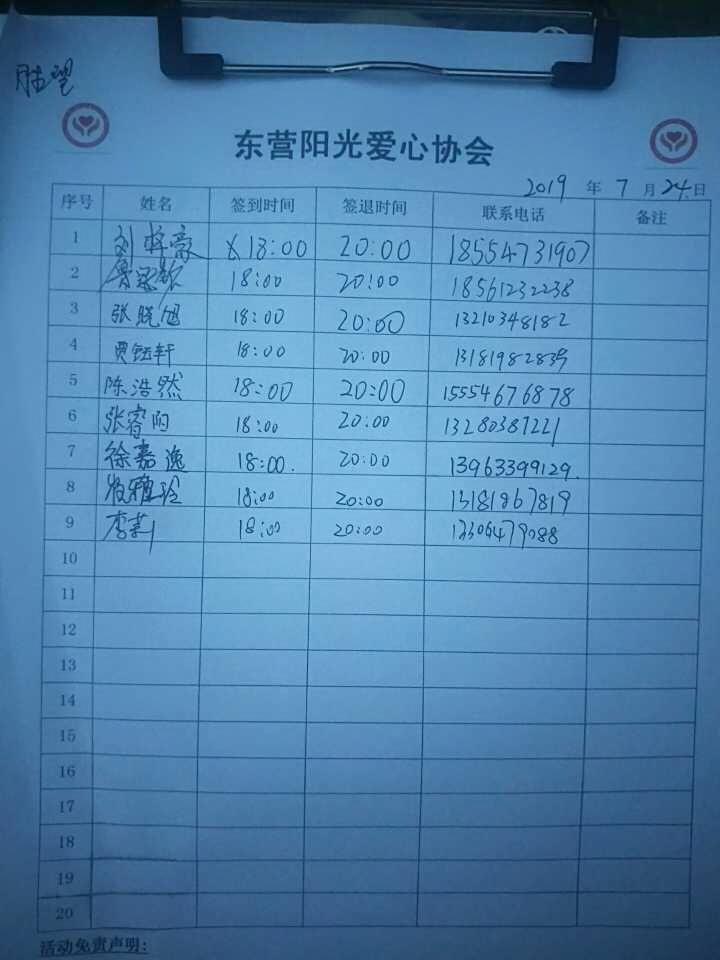 胜望
东营阳光爱心协会
2019 年 7 月 24 日
序号 姓名 签到时间 签退时间 联系电话 备注
1 刘 豪 18:00 20:00 18554731907
2 18:00 20:00 18561232238
3 张晓旭 18:00 20:00 13210348182
4 贾钰轩 18:00 20:00 13181982839
5 陈浩然 18:00 20:00 15554676878
6 张 雨 18:00 20:00 13280387221
7 徐嘉逸 18:00. 20:00 13963399129.
8 雅玲 18:00 20:00 13181867819
9 李莉 18:00 20:00
10
11
12
13
14
15
16
17
18
19
20
活动免责声明: